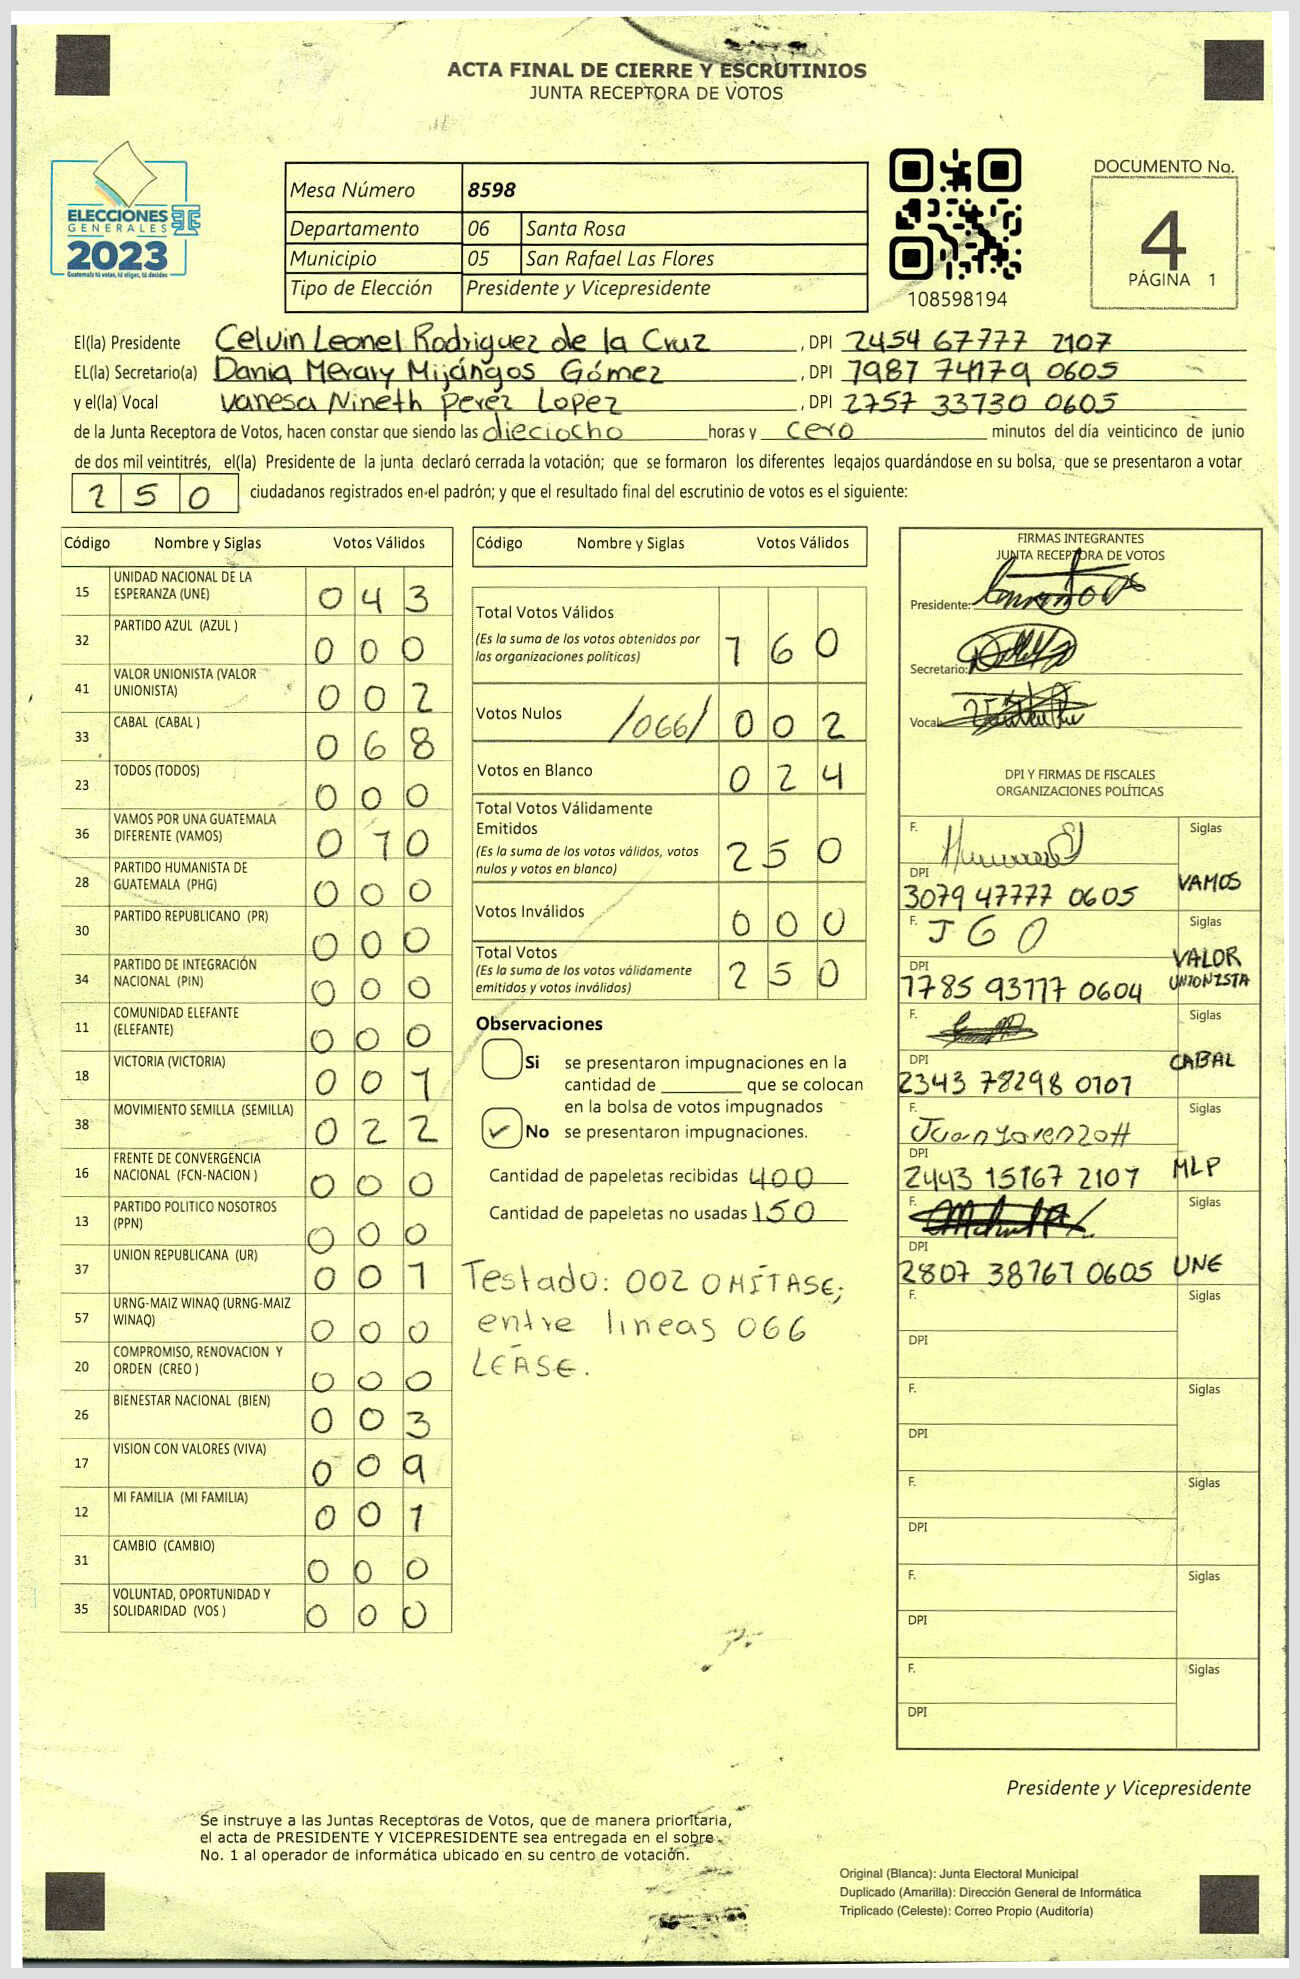 ACTA FINAL DE CIERRE Y ESCRUTINIOS
JUNTA RECEPTORA DE VOTOS
ELECCIONES
GENERALES
2023
Guatemala tú votas, tú eliges, tú decides
Mesa Número 8598
Departamento 06 Santa Rosa
Municipio 05 San Rafael Las Flores
Tipo de Elección Presidente y Vicepresidente
108598194
DOCUMENTO No.
4
PÁGINA 1
El(la) Presidente Celvin Leonel Rodriguez de la Cruz, DPI 2454 67777 2107
EL(la) Secretario(a) Dania Merary Mijángos Gómez, DPI 7987 74179 0605
y el(la) Vocal Vanesa Nineth perez Lopez, DPI 2757 33730 0605
de la Junta Receptora de Votos, hacen constar que siendo las dieciocho horas y cero minutos del día veinticinco de junio
de dos mil veintitrés, el(la) Presidente de la junta declaró cerrada la votación; que se formaron los diferentes legajos quardándose en su bolsa, que se presentaron a votar
250 ciudadanos registrados en el padrón; y que el resultado final del escrutinio de votos es el siguiente:
Código Nombre y Siglas Votos Válidos
15 UNIDAD NACIONAL DE LA ESPERANZA (UNE) 043
32 PARTIDO AZUL (AZUL ) 000
41 VALOR UNIONISTA (VALOR UNIONISTA) 002
33 CABAL (CABAL ) 068
23 TODOS (TODOS) 000
36 VAMOS POR UNA GUATEMALA DIFERENTE (VAMOS) 010
28 PARTIDO HUMANISTA DE GUATEMALA (PHG) 000
30 PARTIDO REPUBLICANO (PR) 000
34 PARTIDO DE INTEGRACIÓN NACIONAL (PIN) 000
11 COMUNIDAD ELEFANTE (ELEFANTE) 000
18 VICTORIA (VICTORIA) 001
38 MOVIMIENTO SEMILLA (SEMILLA) 022
16 FRENTE DE CONVERGENCIA NACIONAL (FCN-NACION ) 000
13 PARTIDO POLITICO NOSOTROS (PPN) 000
37 UNION REPUBLICANA (UR) 001
57 URNG-MAIZ WINAQ (URNG-MAIZ WINAQ) 000
20 COMPROMISO, RENOVACION Y ORDEN (CREO ) 000
26 BIENESTAR NACIONAL (BIEN) 003
17 VISION CON VALORES (VIVA) 009
12 MI FAMILIA (MI FAMILIA) 001
31 CAMBIO (CAMBIO) 000
35 VOLUNTAD, OPORTUNIDAD Y SOLIDARIDAD (VOS ) 000
Código Nombre y Siglas Votos Válidos
Total Votos Válidos 160
(Es la suma de los votos obtenidos por
las organizaciones políticas)
Votos Nulos /066/ 002
Votos en Blanco 024
Total Votos Válidamente
Emitidos 250
(Es la suma de los votos válidos, votos
nulos y votos en blanco)
Votos Inválidos 000
Total Votos 250
(Es la suma de los votos válidamente
emitidos y votos inválidos)
Observaciones
Si se presentaron impugnaciones en la
cantidad de ________ que se colocan
en la bolsa de votos impugnados
No se presentaron impugnaciones.
Cantidad de papeletas recibidas 400
Cantidad de papeletas no usadas 150
Testado: 002 OMÍTASE;
entre lineas 066
LEASE.
FIRMAS INTEGRANTES
JUNTA RECEPTORA DE VOTOS
Presidente:
Secretario:
Vocal:
DPI Y FIRMAS DE FISCALES
ORGANIZACIONES POLÍTICAS
F. Siglas
DPI 3079 47777 0605 VAMOS
F. JGO Siglas
DPI 1785 93117 0604 VALOR UNIONISTA
F. Siglas
DPI 2343 78298 0101 CABAL
F. Juan Lorenzo H Siglas
DPI 2443 15167 2107 MLP
F. Siglas
DPI 2807 38767 0605 UNE
F. Siglas
DPI
F. Siglas
DPI
F. Siglas
DPI
F. Siglas
DPI
F. Siglas
DPI
Presidente y Vicepresidente
Se instruye a las Juntas Receptoras de Votos, que de manera prioritaria,
el acta de PRESIDENTE Y VICEPRESIDENTE sea entregada en el sobre
No. 1 al operador de informática ubicado en su centro de votación.
Original (Blanca): Junta Electoral Municipal
Duplicado (Amarilla): Dirección General de Informática
Triplicado (Celeste): Correo Propio (Auditoría)